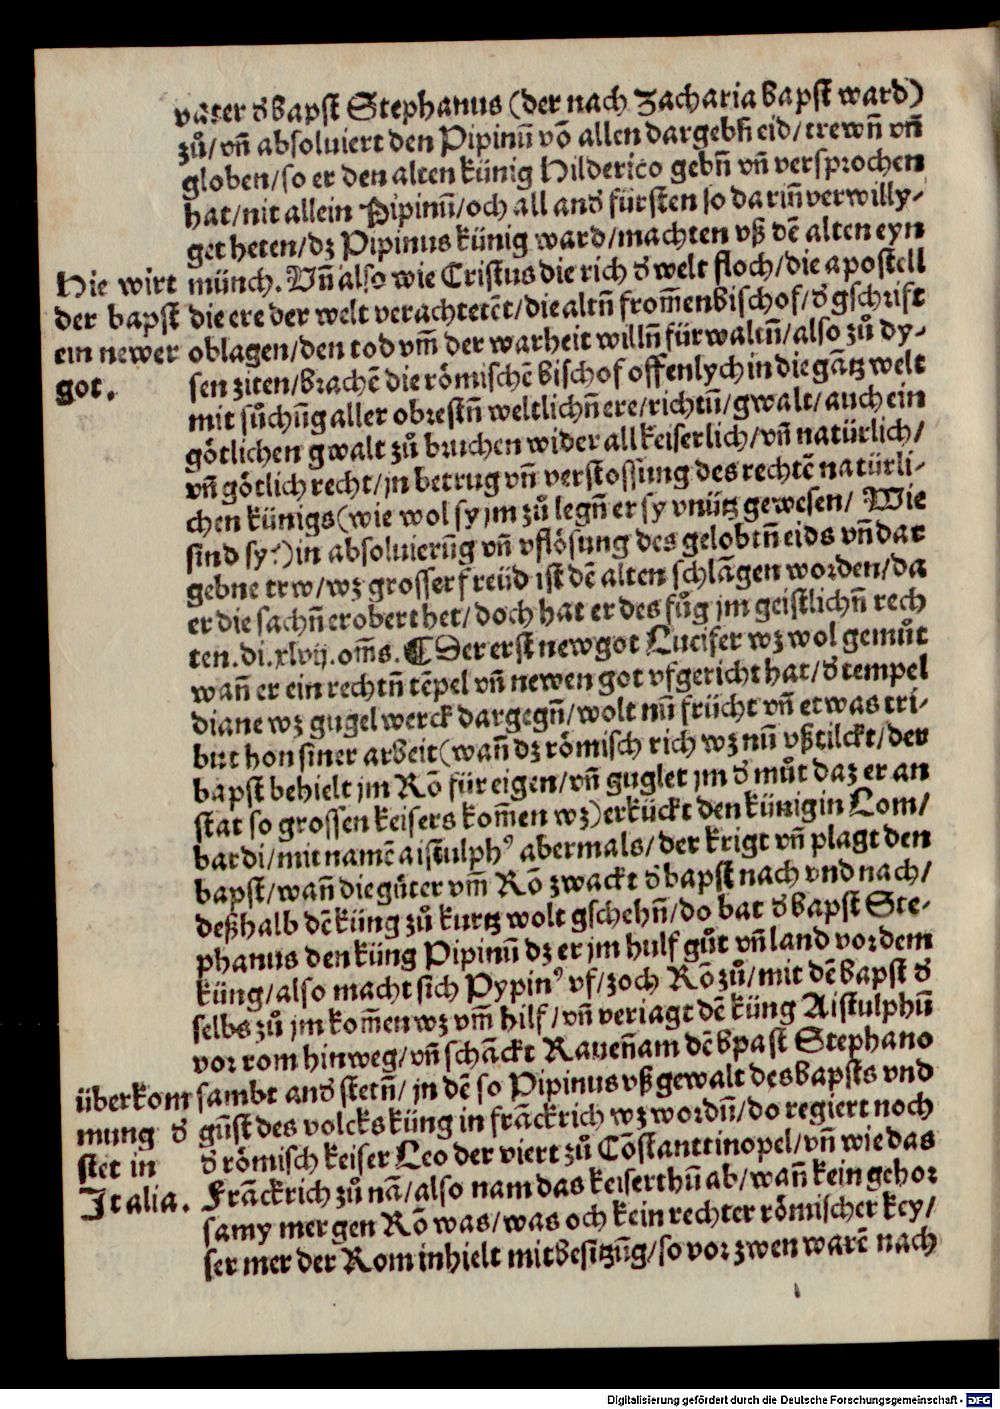 vater d' bapst Stephanus (der nach Zacharia bapst ward)
zů/ vñ absoluiert den Pipinū vō allen dargebñ eid/ trewñ vñ
globen/ so er den alten künig Hilderico gebñ vñ versprochen
hat/ nit allein Pipinū/ och all and' fürsten so dariñ verwilly-
get heten/ dz Pipinus künig ward/ machten vß dē alten eyn
münch. Vñ also wie Cristus die rich d' welt floch/ die apostell
die ere der welt verachtetēt/ die altñ from̄en bischof/ d' gschrift
oblagen/ den tod vm̄ der warheit willñ für waltñ/ also zů dy-
sen ziten/ brachē die römischē bischof offenlych in die gātz welt
mit sůchūg aller obrestñ weltlichñ ere/ richtū/ gwalt/ auch ein
götlichen gwalt zů bruchen wider all keiserlich/ vñ natürlich/
vñ götlich recht/ jn betrug vñ verstossung des rechtē natürli-
chen künigs (wie wol sy jm zů legñ er sy vnütz gewesen/ Wie
sind sy?) in absoluierūg vñ vflösung des gelobtñ eids vñ dar
gebne trw/ wz grosser freüd ist dē alten schlāgen worden/ da
er die sachñ erobert het/ doch hat er des fůg jm geistlichñ rech
ten. di. xlvij. om̄s. ¶ Der erst new got Lucifer wz wol gemůt
wañ er ein rechtñ tēpel vñ newen got vfgericht hat/ d' tempel
diane wz gugelwerck dargegñ/ wolt nū frücht vñ etwas tri-
but hon siner arbeit (wañ dz römisch rich wz nū vßtilckt/ der
bapst behielt jm Rō für eigen/ vñ guglet jm d' můt daz er an
stat so grossen keisers kom̄en wz) erkückt den künig in Lom/
bardi/ mit namē aistulphꝰ abermals/ der krigt vñ plagt den
bapst/ wañ die güter vm̄ Rō zwackt d' bapst nach vnd nach/
deßhalb dē küng zů kurtz wolt gschehñ/ do bat d' bapst Ste-
phanus den küng Pipinū dz er jm hulf gůt vñ land vor dem
küng/ also macht sich Pypinꝰ vf/ zoch Rō zů/ mit dē bapst d'
selbs zů jm kom̄en wz vm̄ hilf/ vñ veriagt dē küng Aistulphū
vor rom hinweg/ vñ schāckt Raueñam dē bpast Stephano
sambt and' stetñ/ jn dē so Pipinus vß gewalt des bapsts vnd
gūst des volcks küng in frāckrich wz wordñ/ do regiert noch
d' römisch keiser Leo der viert zů Cōstanttinopel/ vñ wie das
Frāckrich zů nā/ also nam das keiserthū ab/ wañ kein gehor
samy mer gen Rō was/ was och kein rechter römischer key/
ser mer der Rom inhielt mit besitzūg/ so vor zwen warē nach
Hie wirt
der bapst
ein newer
got.
überkom
mung d'
stet in
Italia.
Digitalisierung gefördert durch die Deutsche Forschungsgemeinschaft - DFG